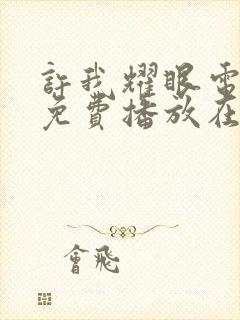 許我耀眼電
免費播放在
會飛